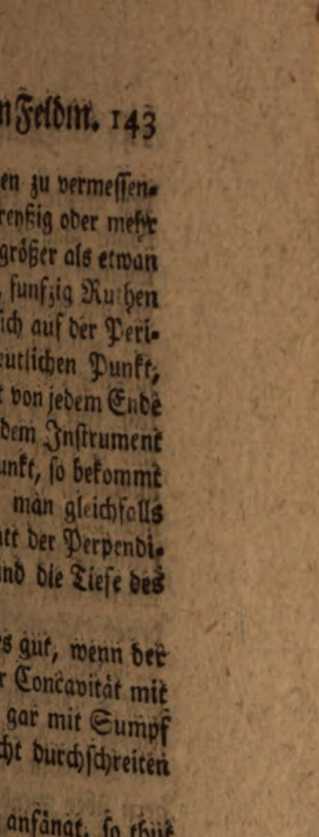 n Feldm. 143
en zu vermessen-
reyßig oder mehr
größer als etwan
, funfzig Ruthen
ich auf der Peri-
eutlichen Punkt,
t von jedem Ende
dem Instrument
unkt, so bekommt
man gleichfalls
att der Perpendi-
und die Tiefe des
es gut, wenn der
r Concavität mit
gar mit Sumpf
cht durchschreiten
anfängt, so thut